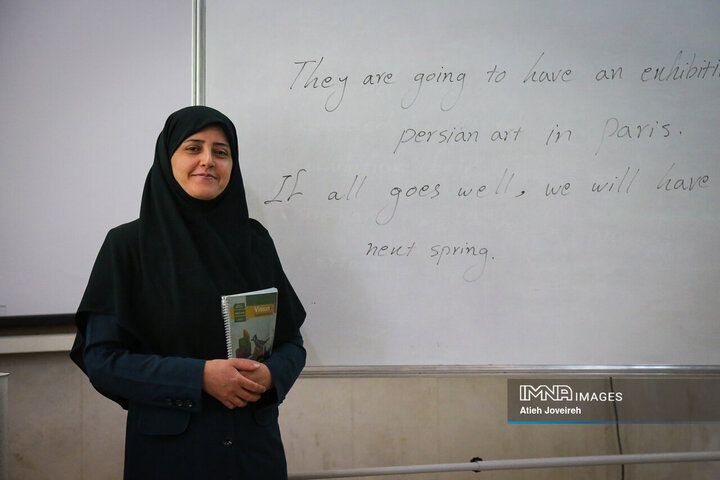 They are going to have an exhibiti
persian art in paris.
If all goes well, we will have
next spring.
Vision
IMNA IMAGES
Atieh Joveireh